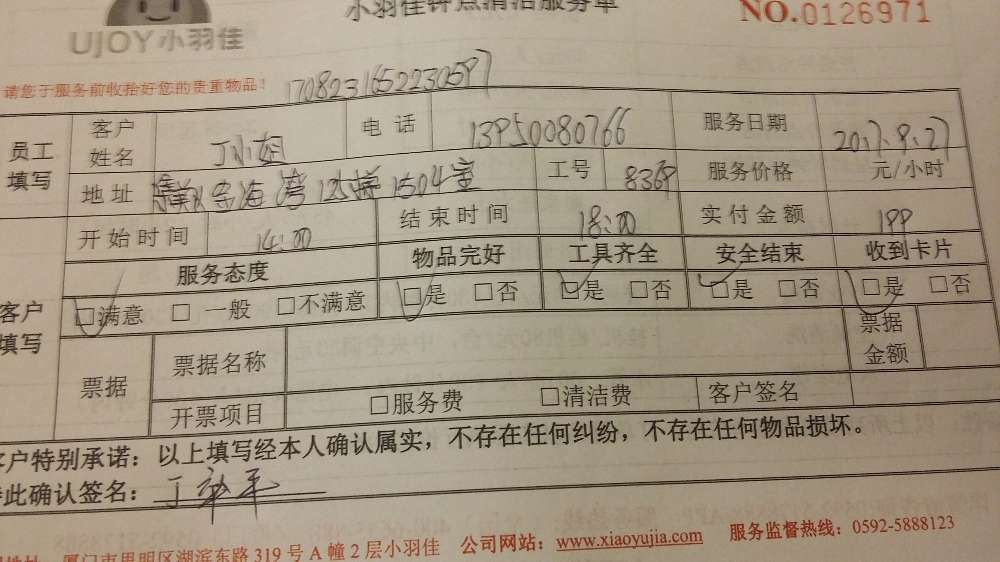 小羽佳钟点清洁服务单
NO.0126971
UJOY小羽佳
请您于服务前收拾好您的贵重物品！
1708231652230597
员工填写
客户姓名 丁小姐 电话 13950080766 服务日期 2017.9.27
地址 海湾 1504室 工号 8369 服务价格 元/小时
开始时间 14:00 结束时间 18:00 实付金额 199
客户填写
服务态度 物品完好 工具齐全 安全结束 收到卡片
☑满意 □一般 □不满意 ☑是 □否 ☑是 □否 ☑是 □否 ☑是 □否
票据 票据名称 票据金额
开票项目 □服务费 □清洁费 客户签名
客户特别承诺：以上填写经本人确认属实，不存在任何纠纷，不存在任何物品损坏。
特此确认签名：丁
地址 厦门市思明区湖滨东路319号A幢2层小羽佳 公司网站：www.xiaoyujia.com 服务监督热线：0592-5888123